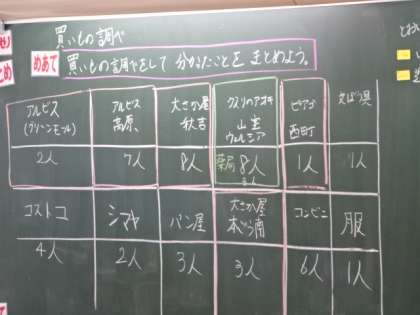 買いもの調べ
めあて
買いもの調べをして 分かたことを まとめよう。
アルビス
(グリーンモール)
アルビス
高原
大さか屋
秋吉
クスリのアオキ
山室
ウェルシア
ピアゴ
西町
えほう具
2人
7人
8人
薬局 8人
1人
1人
コストコ
シマヤ
パン屋
大さか屋
本ごう南
コンビニ
服
4人
2人
3人
3人
6人
1人